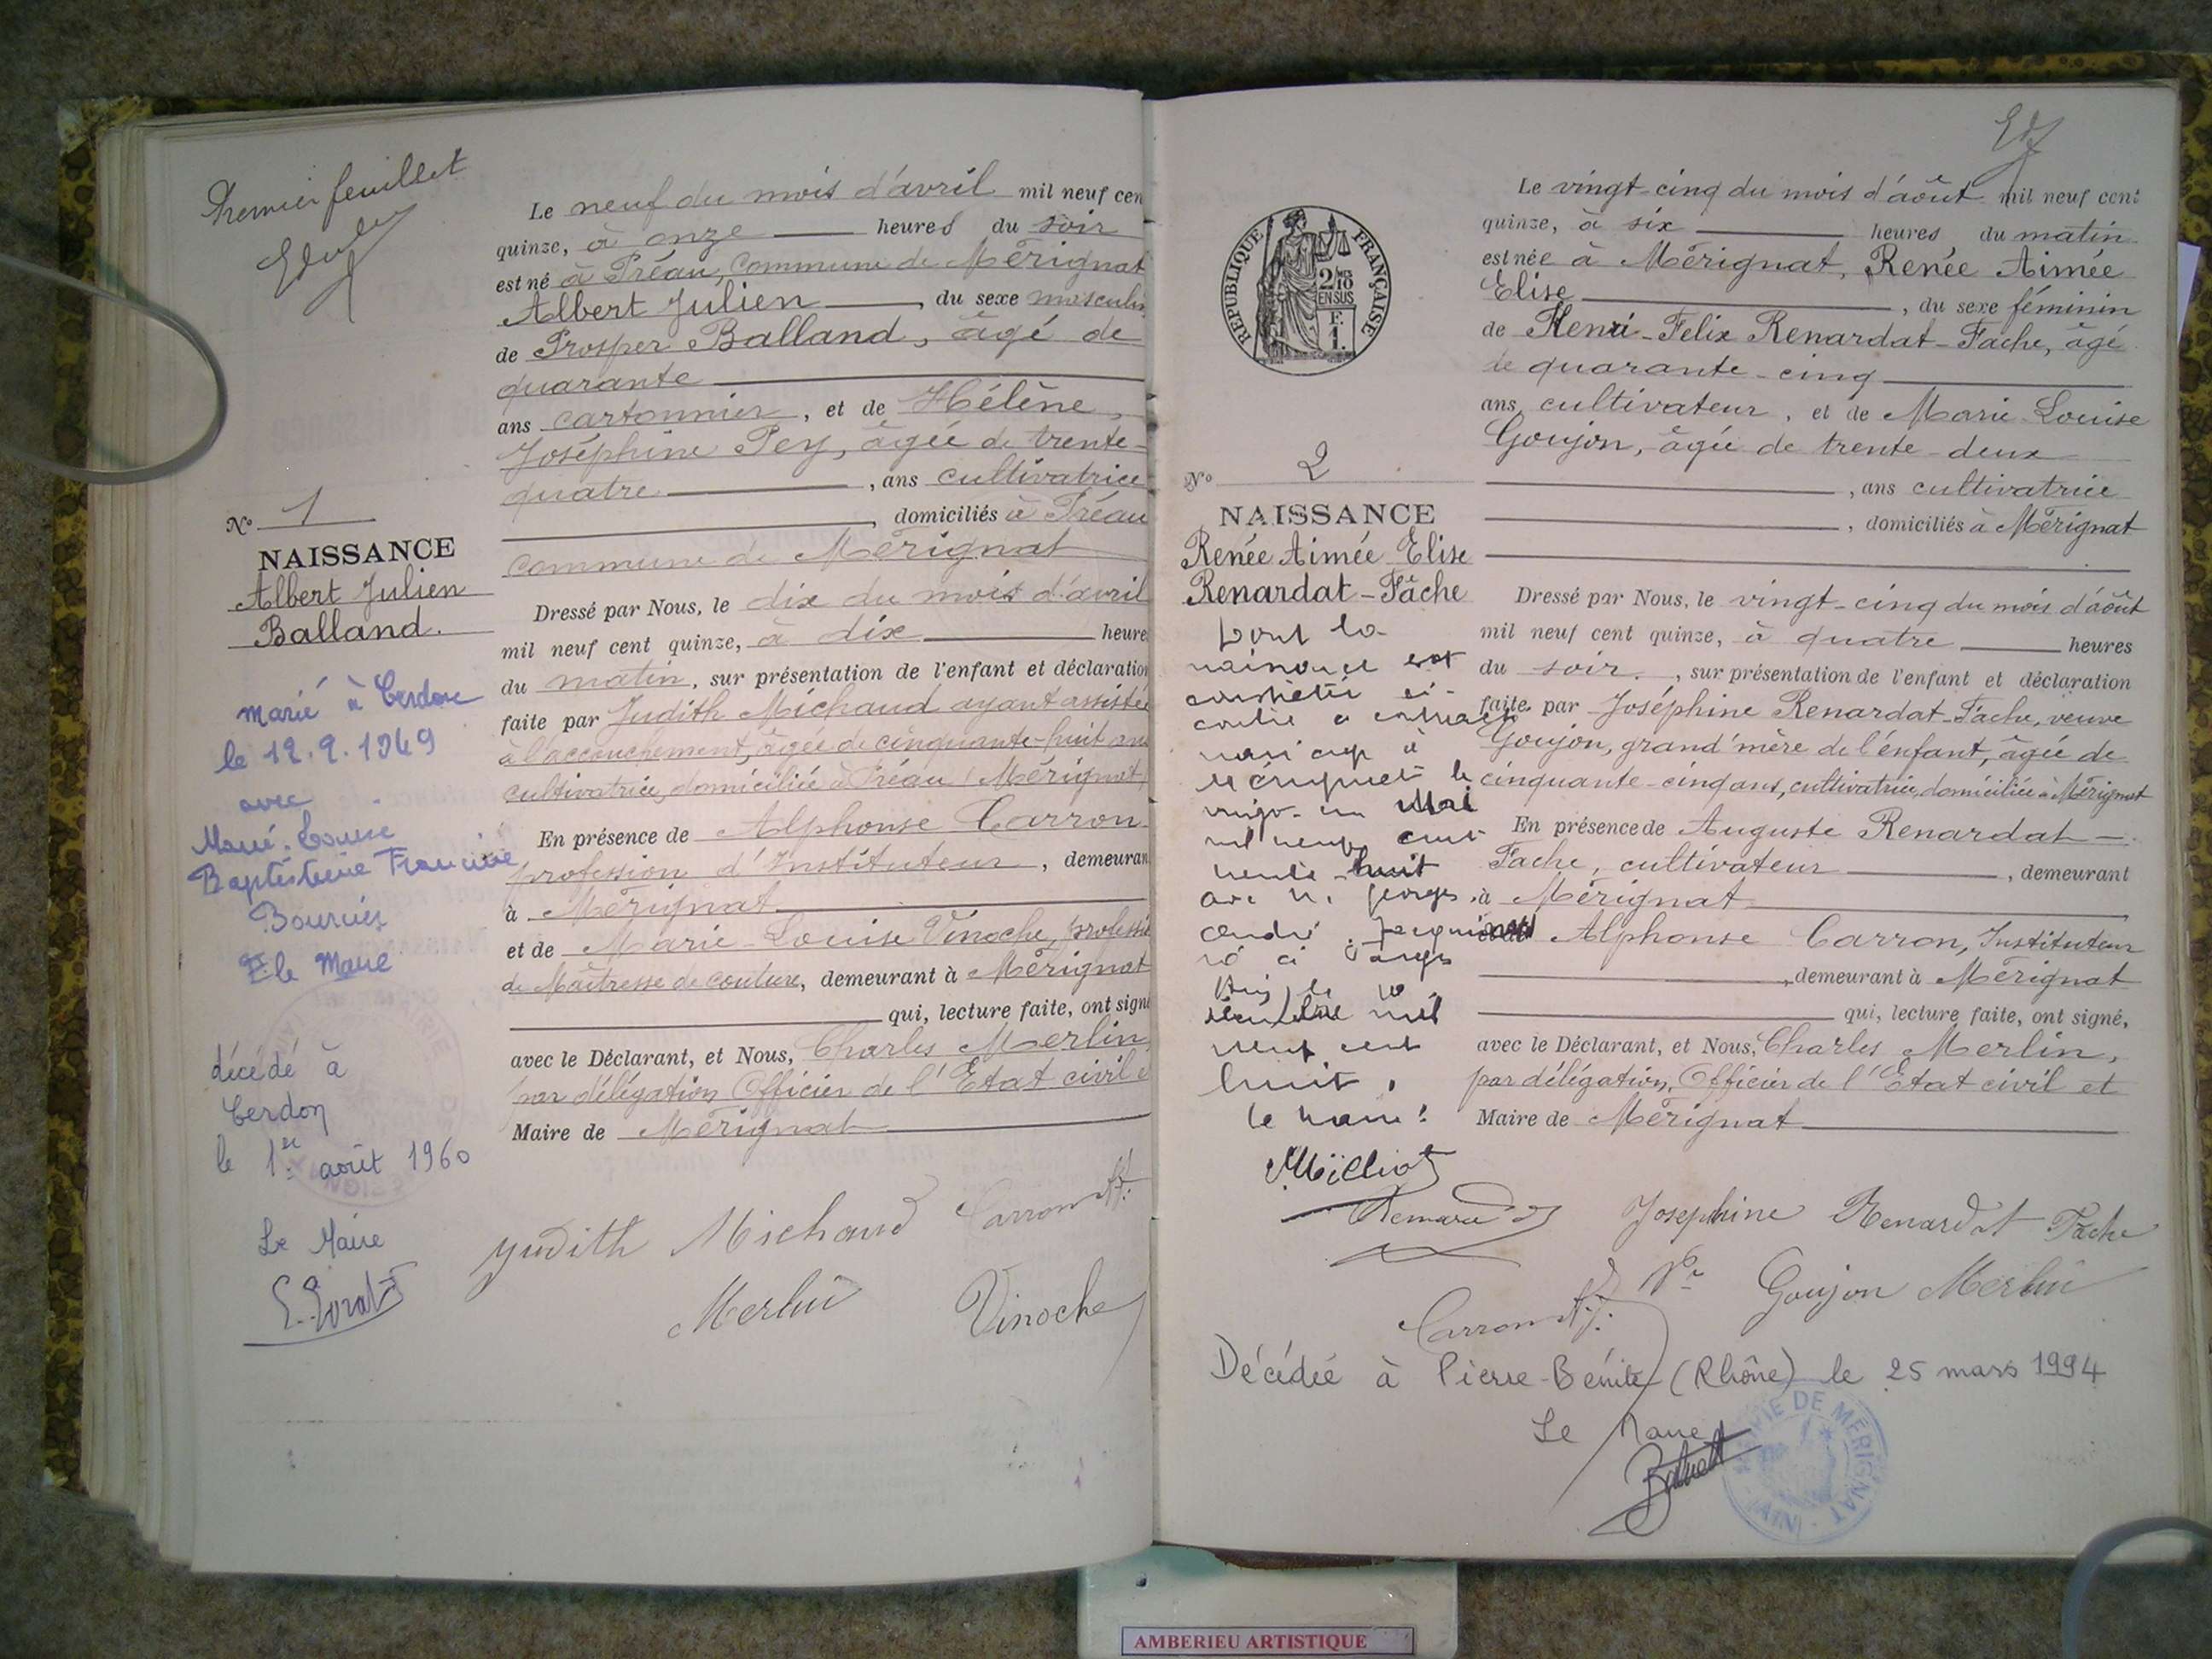 Premier feuillet
Le neuf du mois d'avril mil neuf cen
quinze, à onze heures du soir
est né à Préau, Commune de Mérignat
Albert Julien, du sexe masculin
de Prosper Balland, âgé de
quarante
ans cartonnier, et de Hélène
Joséphine Pey, âgée de trente-
quatre, ans cultivatrice
, domiciliés à Préau
commune de Mérignat
Nº 1
NAISSANCE
Albert Julien
Balland.
Dressé par Nous, le dix du mois d'avril
mil neuf cent quinze, à dix heure
du matin, sur présentation de l'enfant et déclaration
faite par Judith Michaud ayant assisté
à l'accouchement, âgée de cinquante-huit ans
cultivatrice, domiciliée à Préau, Mérignat
En présence de Alphonse Carron
profession d'Instituteur, demeuran
à Mérignat
et de Marie-Louise Vinoche, professi
de Maîtresse de couture, demeurant à Mérignat
qui, lecture faite, ont signé
avec le Déclarant, et Nous, Charles Merlin
par délégation Officier de l'Etat civil e
Maire de Mérignat
marié à Cerdon
le 12.9.1949
avec
Marie-Louise
Baptistine Francine
Bourcier
le Maire
décédé à
Cerdon
le 1er août 1960
Le Maire
Judith Michaud Carron
Merlin Vinoche
REPUBLIQUE FRANÇAISE
2/10
EN SUS
F.
1.
Le vingt-cinq du mois d'août mil neuf cent
quinze, à six heures du matin
est née à Mérignat, Renée Aimée
Elise, du sexe féminin
de Henri-Felix Renardat-Fache, âgé
de quarante-cinq
ans, cultivateur, et de Marie-Louise
Goujon, âgée de trente-deux
, ans cultivatrice
, domiciliés à Mérignat
Nº 2
NAISSANCE
Renée Aimée Elise
Renardat-Fâche
Dressé par Nous, le vingt-cinq du mois d'août
mil neuf cent quinze, à quatre heures
du soir, sur présentation de l'enfant et déclaration
faite par Joséphine Renardat-Fache, veuve
Goujon, grand'mère de l'enfant, âgée de
cinquante-cinq ans, cultivatrice, domiciliée à Mérignat
En présence de Auguste Renardat-
Fache, cultivateur, demeurant
à Mérignat
Alphonse Carron, Instituteur
, demeurant à Mérignat
qui, lecture faite, ont signé,
avec le Déclarant, et Nous, Charles Merlin,
par délégation, Officier de l'Etat civil et
Maire de Mérignat
Dont la
naissance est
constatée ci-
contre a contracté
mariage à
Mérignat le
vingt-un Mai
mil neuf cent
trente-huit
avec M. Georges
André
né à
le 10
mil
neuf cent
huit.
le maire:
Milliat
Renardat Josephine Renardat Fache
Vve Goujon Merlin
Carron
Décédée à Pierre-Bénite (Rhône) le 25 mars 1994
Le Maire
MAIRIE DE MERIGNAT (AIN)
AMBERIEU ARTISTIQUE